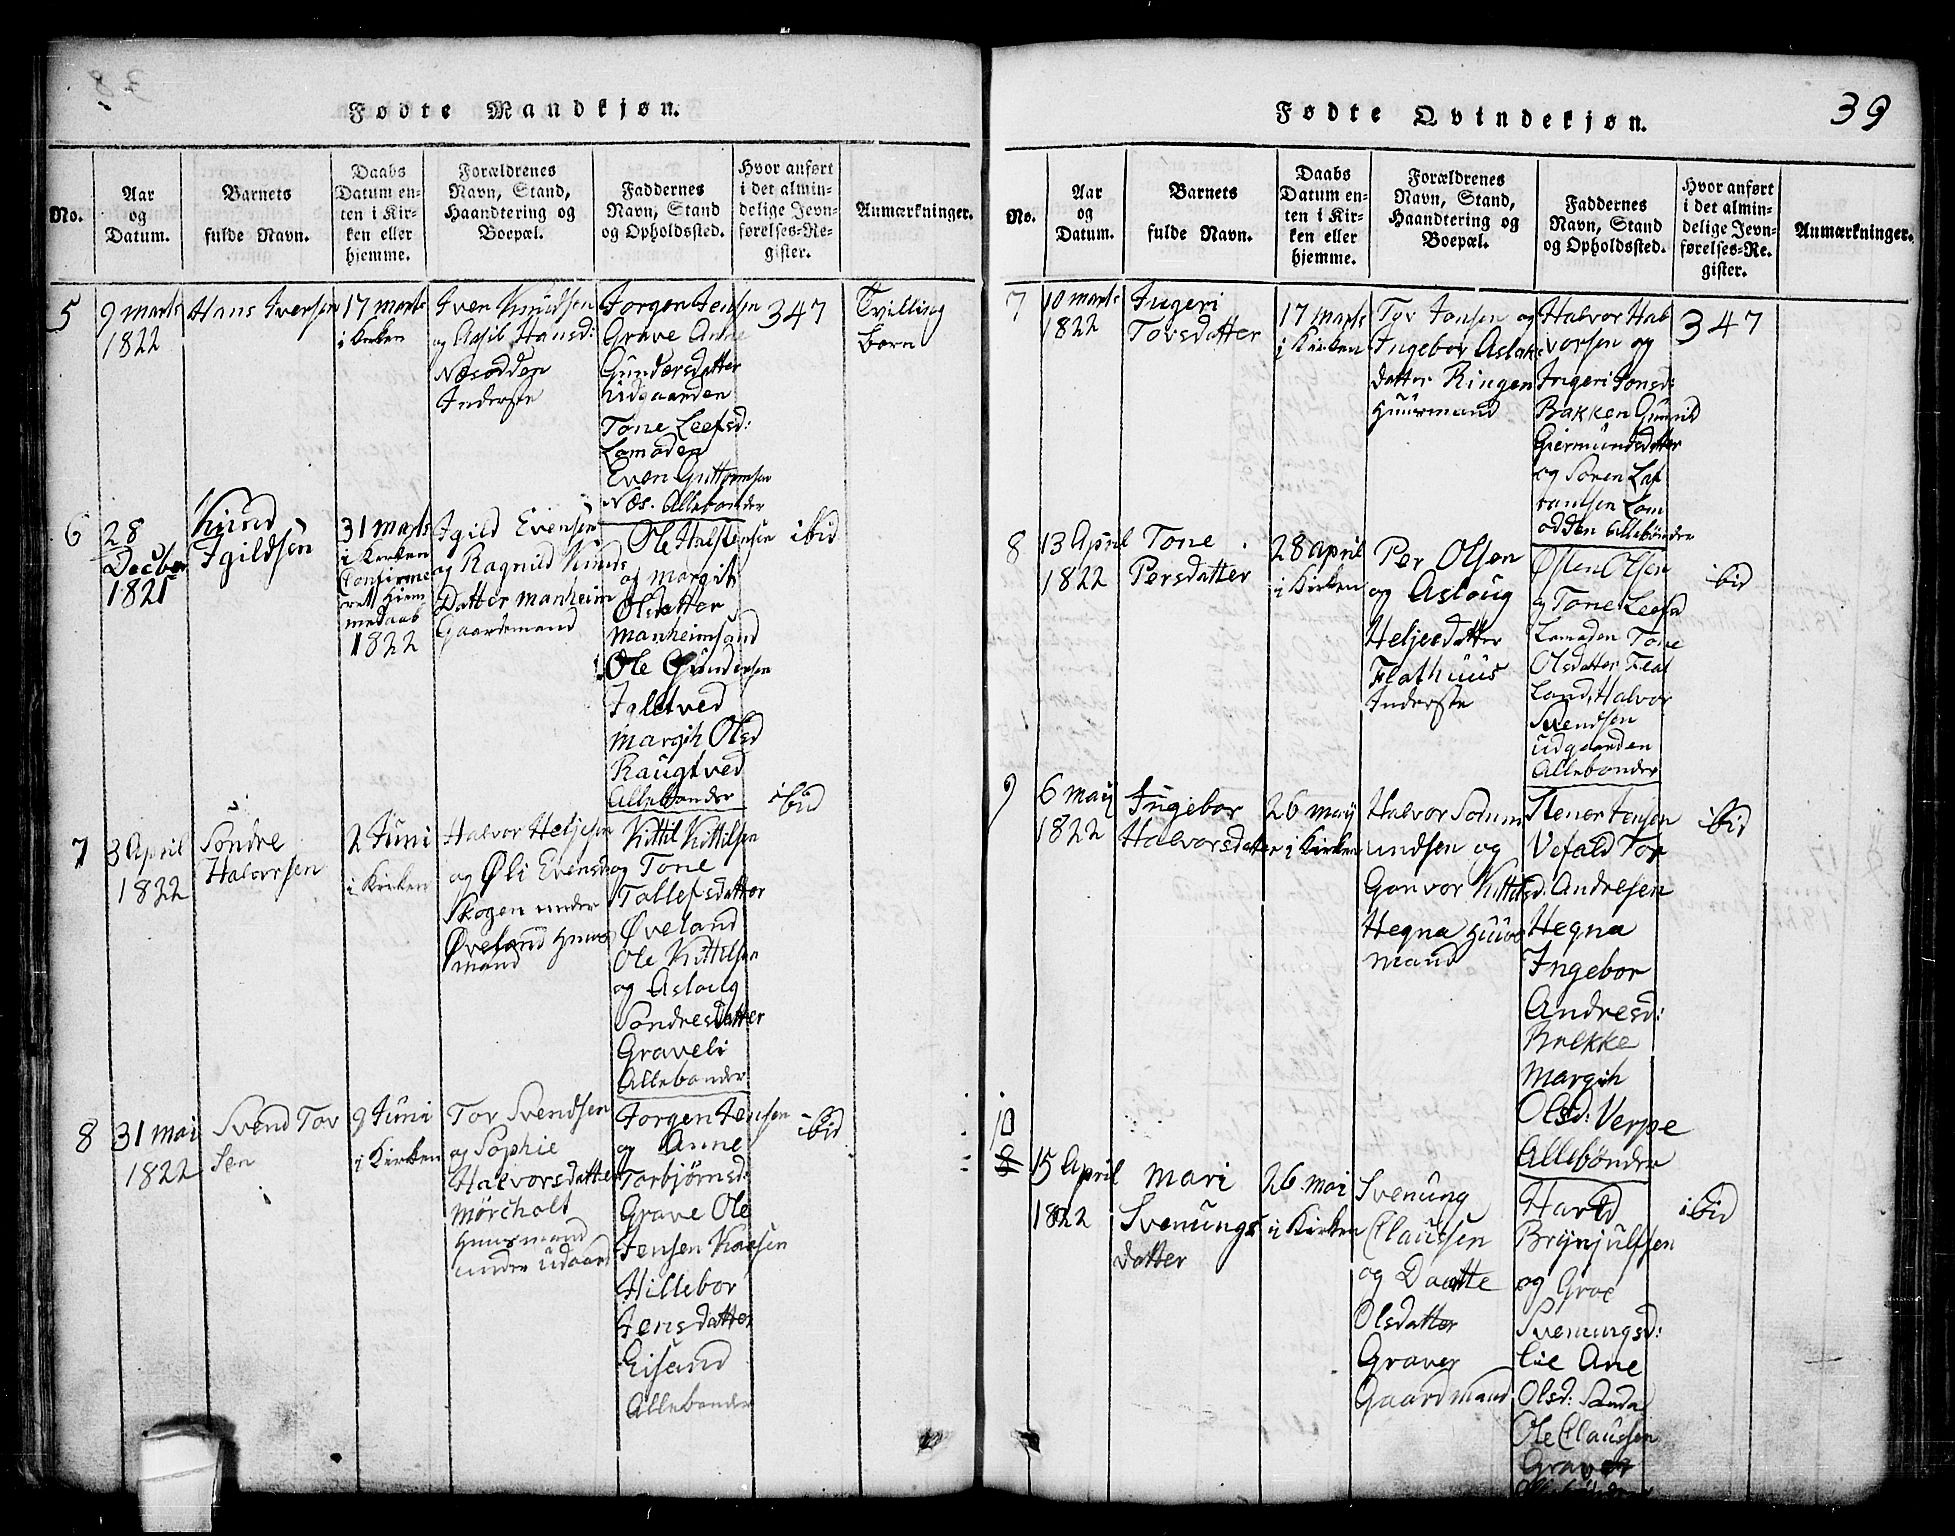 38
Fødte Mandkjøn.
No.
Aar
og
Datum.
Barnets
fulde Navn.
Daabs
Datum en-
ten i Kir-
ken eller
hjemme.
Forældrenes
Navn, Stand,
Haandtering og
Boepæl.
Faddernes
Navn, Stand
og Opholdssted.
Hvor anført
i det almin-
delige Jevn-
førelses-Re-
gister.
Anmærkninger.
5
9 marts
1822
Hans Iversen
17 marts
i Kirken
Iven Knudsen
og Aasil Hansd:
Næsodden
Inderste
Jorgen Jensen
Grave Anne
Gundersdatter
Udgaarden
Tone Leefsd:
Lomoden
Even Guttormsen
Næs. Allebonder
347
Tvilling
born
6
28
Decbr
1821
Knud
Igildsen
31 marts
i Kirken
Confirme
ret Hiem
medaab
1822
Igild Evensen
og Ragnild Knuds
Datter Manheim
Gaardemand
Ole Halstensen
og Margit
Olsdatter
Manheimsand
Ole Gundersen
Jaltved
Margith Olsd
Raugtved
Allebonder
ibid
7
3 April
1822
Sondre
Halvorsen
2 Juni
i Kirken
Halvor Heljesen
og Øli Evensd
Skogen under
Øveland Huus
mand
Kittil Kittilsen
og Tone
Tallefsdatter
Øveland
Ole Kittilsen
og Asloug
Sondresdatter
Graveli
Allebonder
ibid
8
31 mai
1822
Svend Tov
Sen
9 Juni
i Kirken
Tov Svendsen
og Sophie
Halvorsdatter
Mörcholt
Huusmand
under Udaard
Jorgen Jensen
og Anne
Torbjørnsd:
Grave Ole
Jensen Kaasen
Hillebor
Jensdatter
Eisand
Allebonder
ibid
39
Fødte Qvindekjøn.
No.
Aar
og
Datum.
Barnets
fulde Navn.
Daabs
Datum en-
ten i Kir-
ken eller
hjemme.
Forældrenes
Navn, Stand,
Haandtering og
Boepæl.
Faddernes
Navn, Stand
og Opholdssted.
Hvor anført
i det almin-
delige Jevn-
førelses-Re-
gister.
Anmærkninger.
7
10 marts
1822
Ingeri
Tovsdatter
17 marts
i Kirken
Tov Jonsen og
Ingebor Aslaks
datter Ringen
Huusmand
Halvor Hal
vorsen og
Ingeri Jonsd:
Bakken Gunild
Giermundsdatter
og Soren Laf
ransen Lom
odden Allebönder
347
8
13 April
1822
Tone
Persdatter
28 april
i Kirken
Per Olsen
og Asloug
Heljesdatter
Flathuus
Inderste
Østen Olsen
og Tone Leefsd
Lomoden Tone
Olsdatter Flat
Land, Halvor
Svendsen
udgaarden
Allebonder
ibid
9
6 maij
1822
Ingebor
Halvorsdatter
26 maij
i Kirken
Halvor Somm
undsen og
Gonvor Kittilsd:
Hegna Huus
mand
Stener Jensen
Vefald Tor
Andresen
Hegna
Ingebor
Andresd:
Brekke
Margith
Olsd: Verpe
Allebönder
ibid
10
15 April
1822
Mari
Svenungs
datter
26 mai
i Kirken
Svenung
Claussen
og Daatte
Olsdatter
Graver
Gaardmand
Harald
Brynjulfsen
og Groe
Svenungsd:
Lie Ane
Olsd: Sanda
Ole Claussen
Graver
ibid